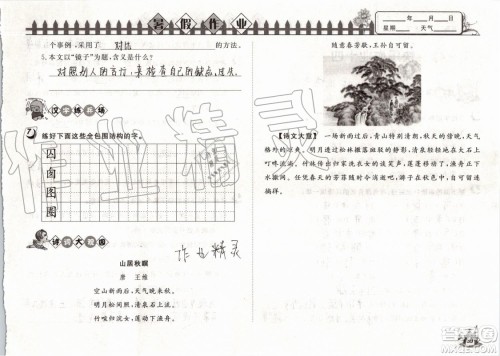 暑假作业
____年__月__日
星期____ 天气____
个事例,采用了 对比 的方法。
5.本文以“镜子”为题,含义是什么?
对照别人的言行,来检查自己的缺点,过失。
汉字练养场
练好下面这些全包围结构的字。
囚
囱
图
图
诗词大观园
山居秋暝
唐 王维
空山新雨后,天气晚来秋。
明月松间照,清泉石上流。
竹喧归浣女,莲动下渔舟。
作业精灵
随意春芳歇,王孙自可留。
【诗文大意】 一场新雨过后,青山特别清朗,秋天的傍晚,天气格外的凉爽。明月透过松林撒落斑驳的静影,清泉轻轻地在大石上叮咚流淌。竹林传出归家洗衣女的谈笑声,莲蓬移动了,渔舟正下水撒网。任凭春天的芳菲随时令消逝吧,游子在秋色中,自可留连徜徉。
作业精灵